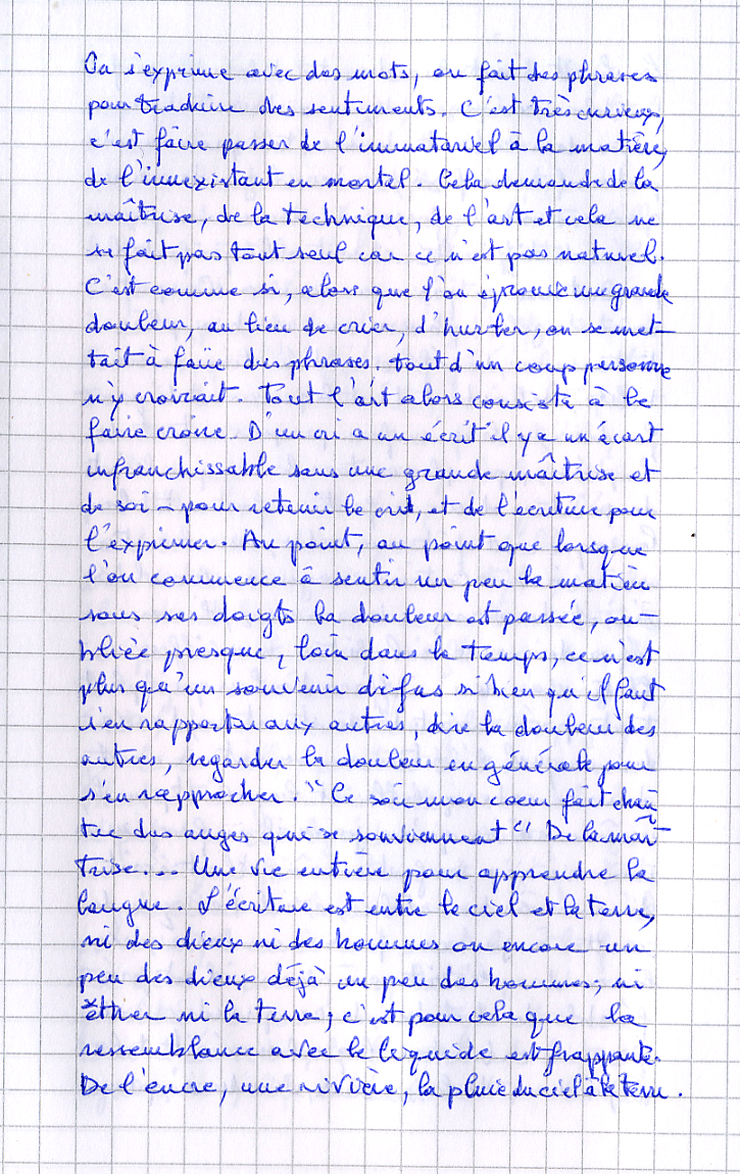 On s'exprime avec des mots, on fait des phrases
pour traduire des sentiments. C'est très curieux,
c'est faire passer de l'immatériel à la matière,
de l'innexistant en mortel. Cela demande de la
maîtrise, de la technique, de l'art et cela ne
se fait pas tout seul car ce n'est pas naturel.
C'est comme si, alors que l'on éprouve une grande
douleur, au lieu de crier, d'hurler, on se met-
tait à faire des phrases. tout d'un coup personne
n'y croirait. Tout l'art alors consiste à le
faire croire. D'un cri a un écrit il y a un écart
infranchissable sans une grande maîtrise et
de soi - pour retenir le cri, et de l'écriture pour
l'exprimer. Au point, au point que lorsque
l'on commence à sentir un peu la matière
sous ses doigts la douleur est passée, ou-
bliée presque, loin dans le temps, ce n'est
plus qu'un souvenir difus si bien qu'il faut
s'en rapporter aux autres, dire la douleur des
autres, regarder la douleur en générale pour
s'en rapprocher. "Ce soir mon coeur fait chan
ter des anges qui se souviennent" De la maî
trise... Une vie entière pour apprendre la
langue. L'écriture est entre le ciel et la terre,
ni des dieux ni des hommes ou encore un
peu des dieux déjà un peu des hommes; ni
éther ni la terre; c'est pour cela que la
ressemblance avec le liquide est frappante.
De l'encre, une rivière, la pluie du ciel à la terre.